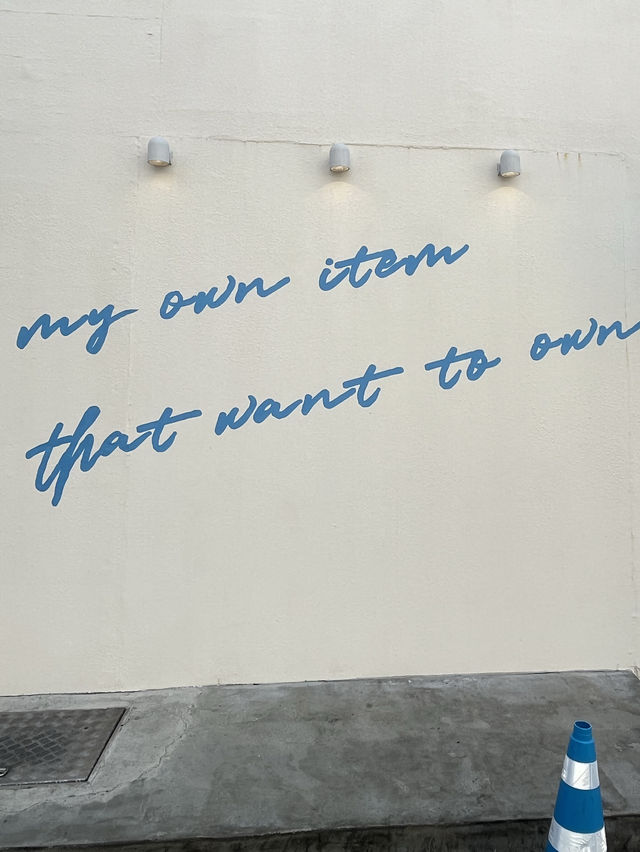 my own item
that want to own